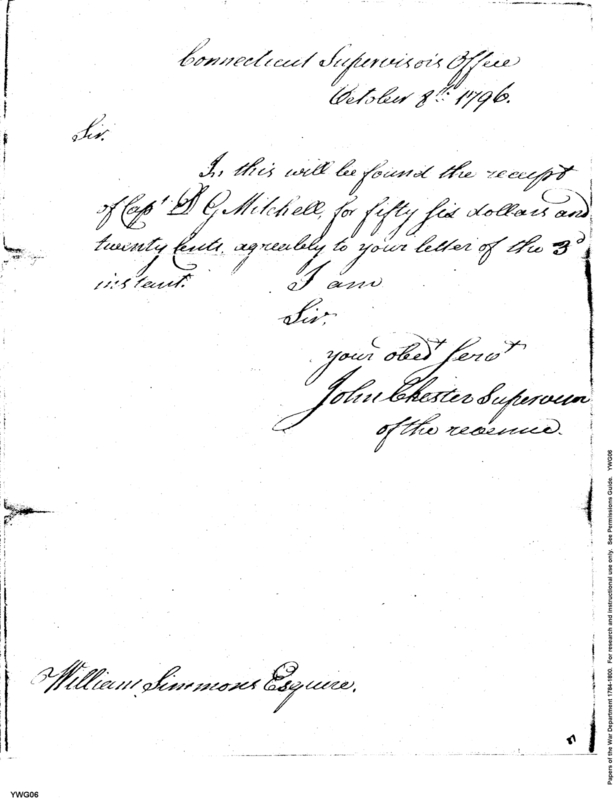 Connecticut Supervisors Office
October 8th. 1796.
Sir.
In this will be found the receipt
of Capt G Mitchell, for fifty six dollars and
twenty cents. agreably to your letter of the 3d
instant. I am
Sir.
your obedt Servt
John Chester Supervisor
of the revenue.
William Simmons Esquire.
YWG06
Papers of the War Department 1784-1800. For research and instructional use only. See Permissions Guide. YWG06